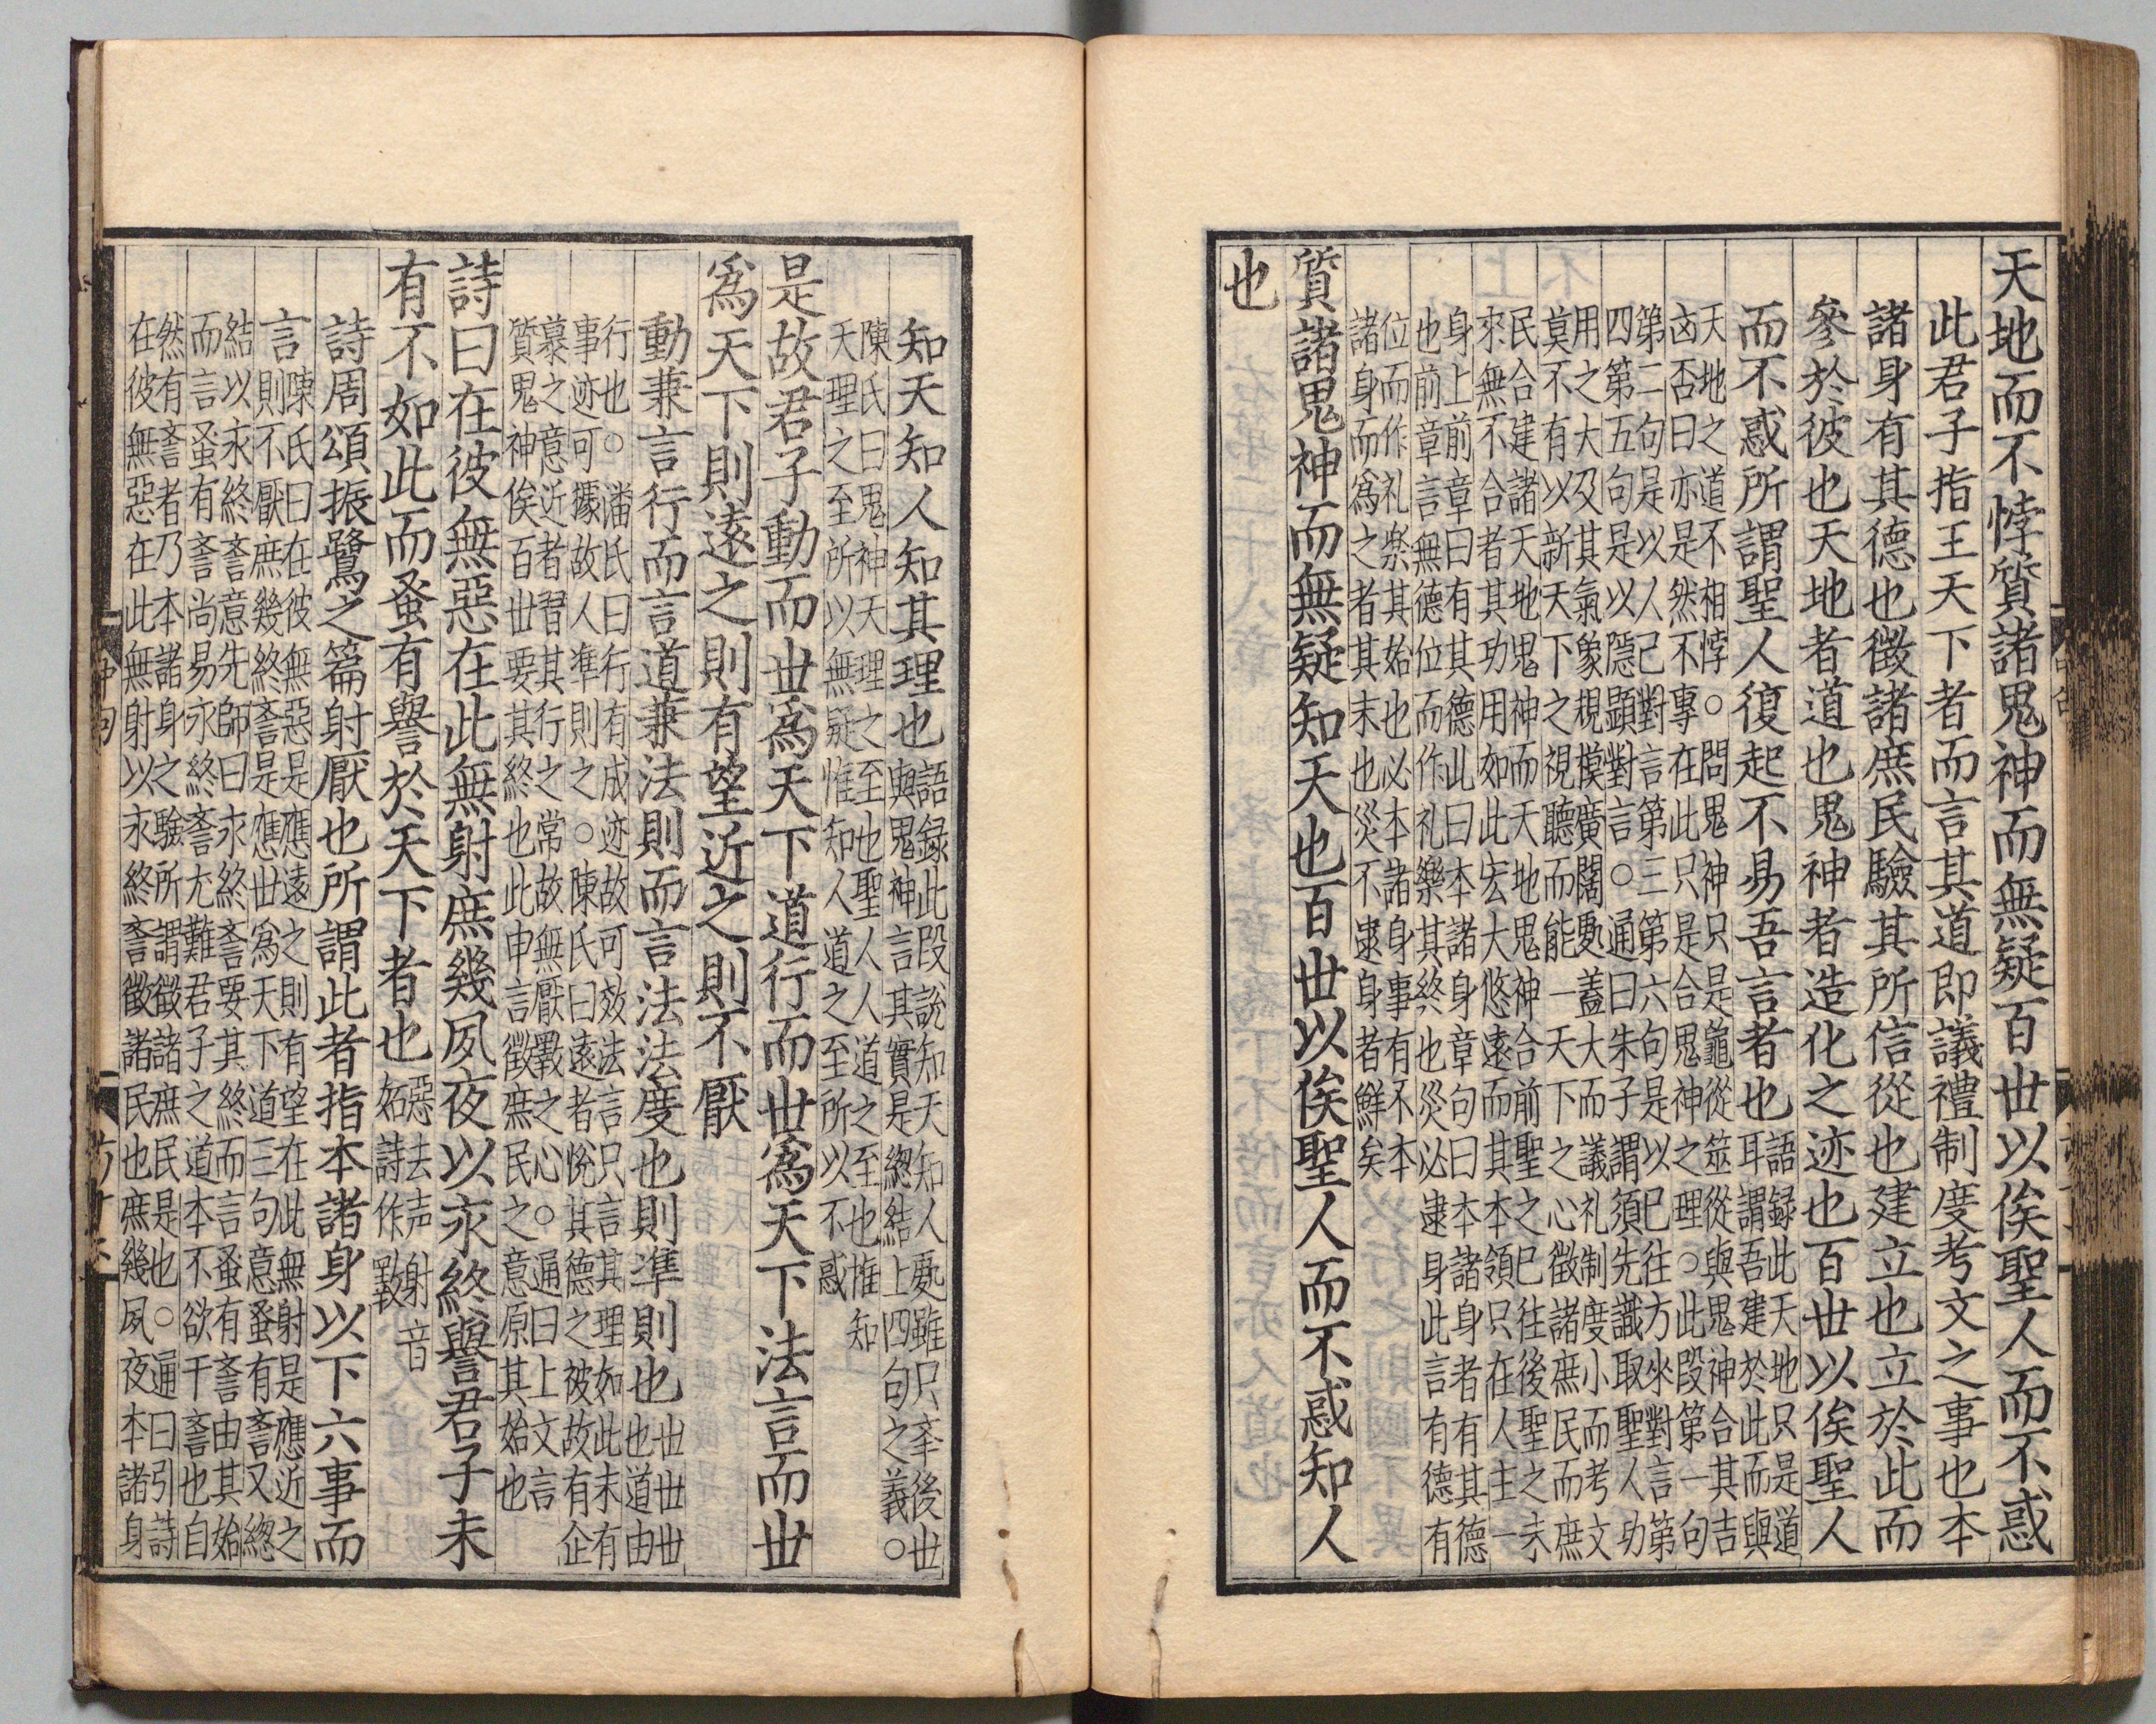 天地而不悖質諸鬼神而無疑百世以俟聖人而不惑
此君子指王天下者而言其道即議禮制度考文之事也本
諸身有其德也徵諸庶民驗其所信從也建立也立於此而
參於彼也天地者道也鬼神者造化之迹也百世以俟聖人
而不惑所謂聖人復起不易吾言者也
語録此天地只是道
耳謂吾建於此而與
天地之道不相悖○問鬼神只是龜從筮從與鬼神合其吉
凶否曰亦是然不專在此只是合鬼神之理○此段第一句
第二句是以人己對言第三第六句是以已往方來對言第
四第五句是以隱顯對言○通曰朱子謂須先識取聖人功
用之大及其氣象規模廣闊䖏蓋大而議礼制度小而考文
莫不有以新天下之視聽而能一天下之心徵諸庶民而庶
民合建諸天地鬼神而天地鬼神合前聖之已往後聖之未
來無不合者其功用如此宏大悠遠而其本領只在人主一
身上前章曰有其德此曰本諸身章句曰本諸身者有其德
也前章言無德位而作礼樂其終也災必逮身此言有德有
位而作礼楽其始也必本諸身事有不本
諸身而爲之者其末也災不逮身者鮮矣
質諸鬼神而無疑知天也百世以俟聖人而不惑知人
也
知天知人知其理也
語録此段說知天知人䖏雖只㪯後世
與鬼神言其實是總結上四句之義○
陳氏曰鬼神天理之至也聖人人道之至也惟知
天理之至所以無疑惟知人道之至所以不惑
是故君子動而世爲天下道行而世爲天下法言而世
爲天下則遠之則有望近之則不厭
動兼言行而言道兼法則而言法法度也則準則也
世世世
也道由
行也○潘氏曰行有成迹故可效法言只言其理如此未有
事迹可據故人準則之○陳氏曰遠者悅其德之被故有企
慕之意近者習其行之常故無厭斁之心○通曰上文言
質鬼神俟百世要其終也此申言徵庶民之意原其始也
詩曰在彼無惡在此無射庶幾夙夜以永終譽君子未
有不如此而蚤有譽於天下者也
惡去声射音
妬詩作斁
詩周頌振鷺之篇射厭也所謂此者指本諸身以下六事而
言
陳氏曰在彼無惡是應遠之則有望在此無射是應近之
則不厭庶幾終誉是應世爲天下道三句意蚤有誉又總
結以永終誉意先師曰永終誉要其終而言蚤有誉由其始
而言蚤有誉尚易永終誉尤難君子之道本不欲干誉也自
然有誉者乃本諸身之驗所謂徵諸庶民是也○通曰引詩
在彼無惡在此無射以永終誉徵諸民也庶幾夙夜本諸身